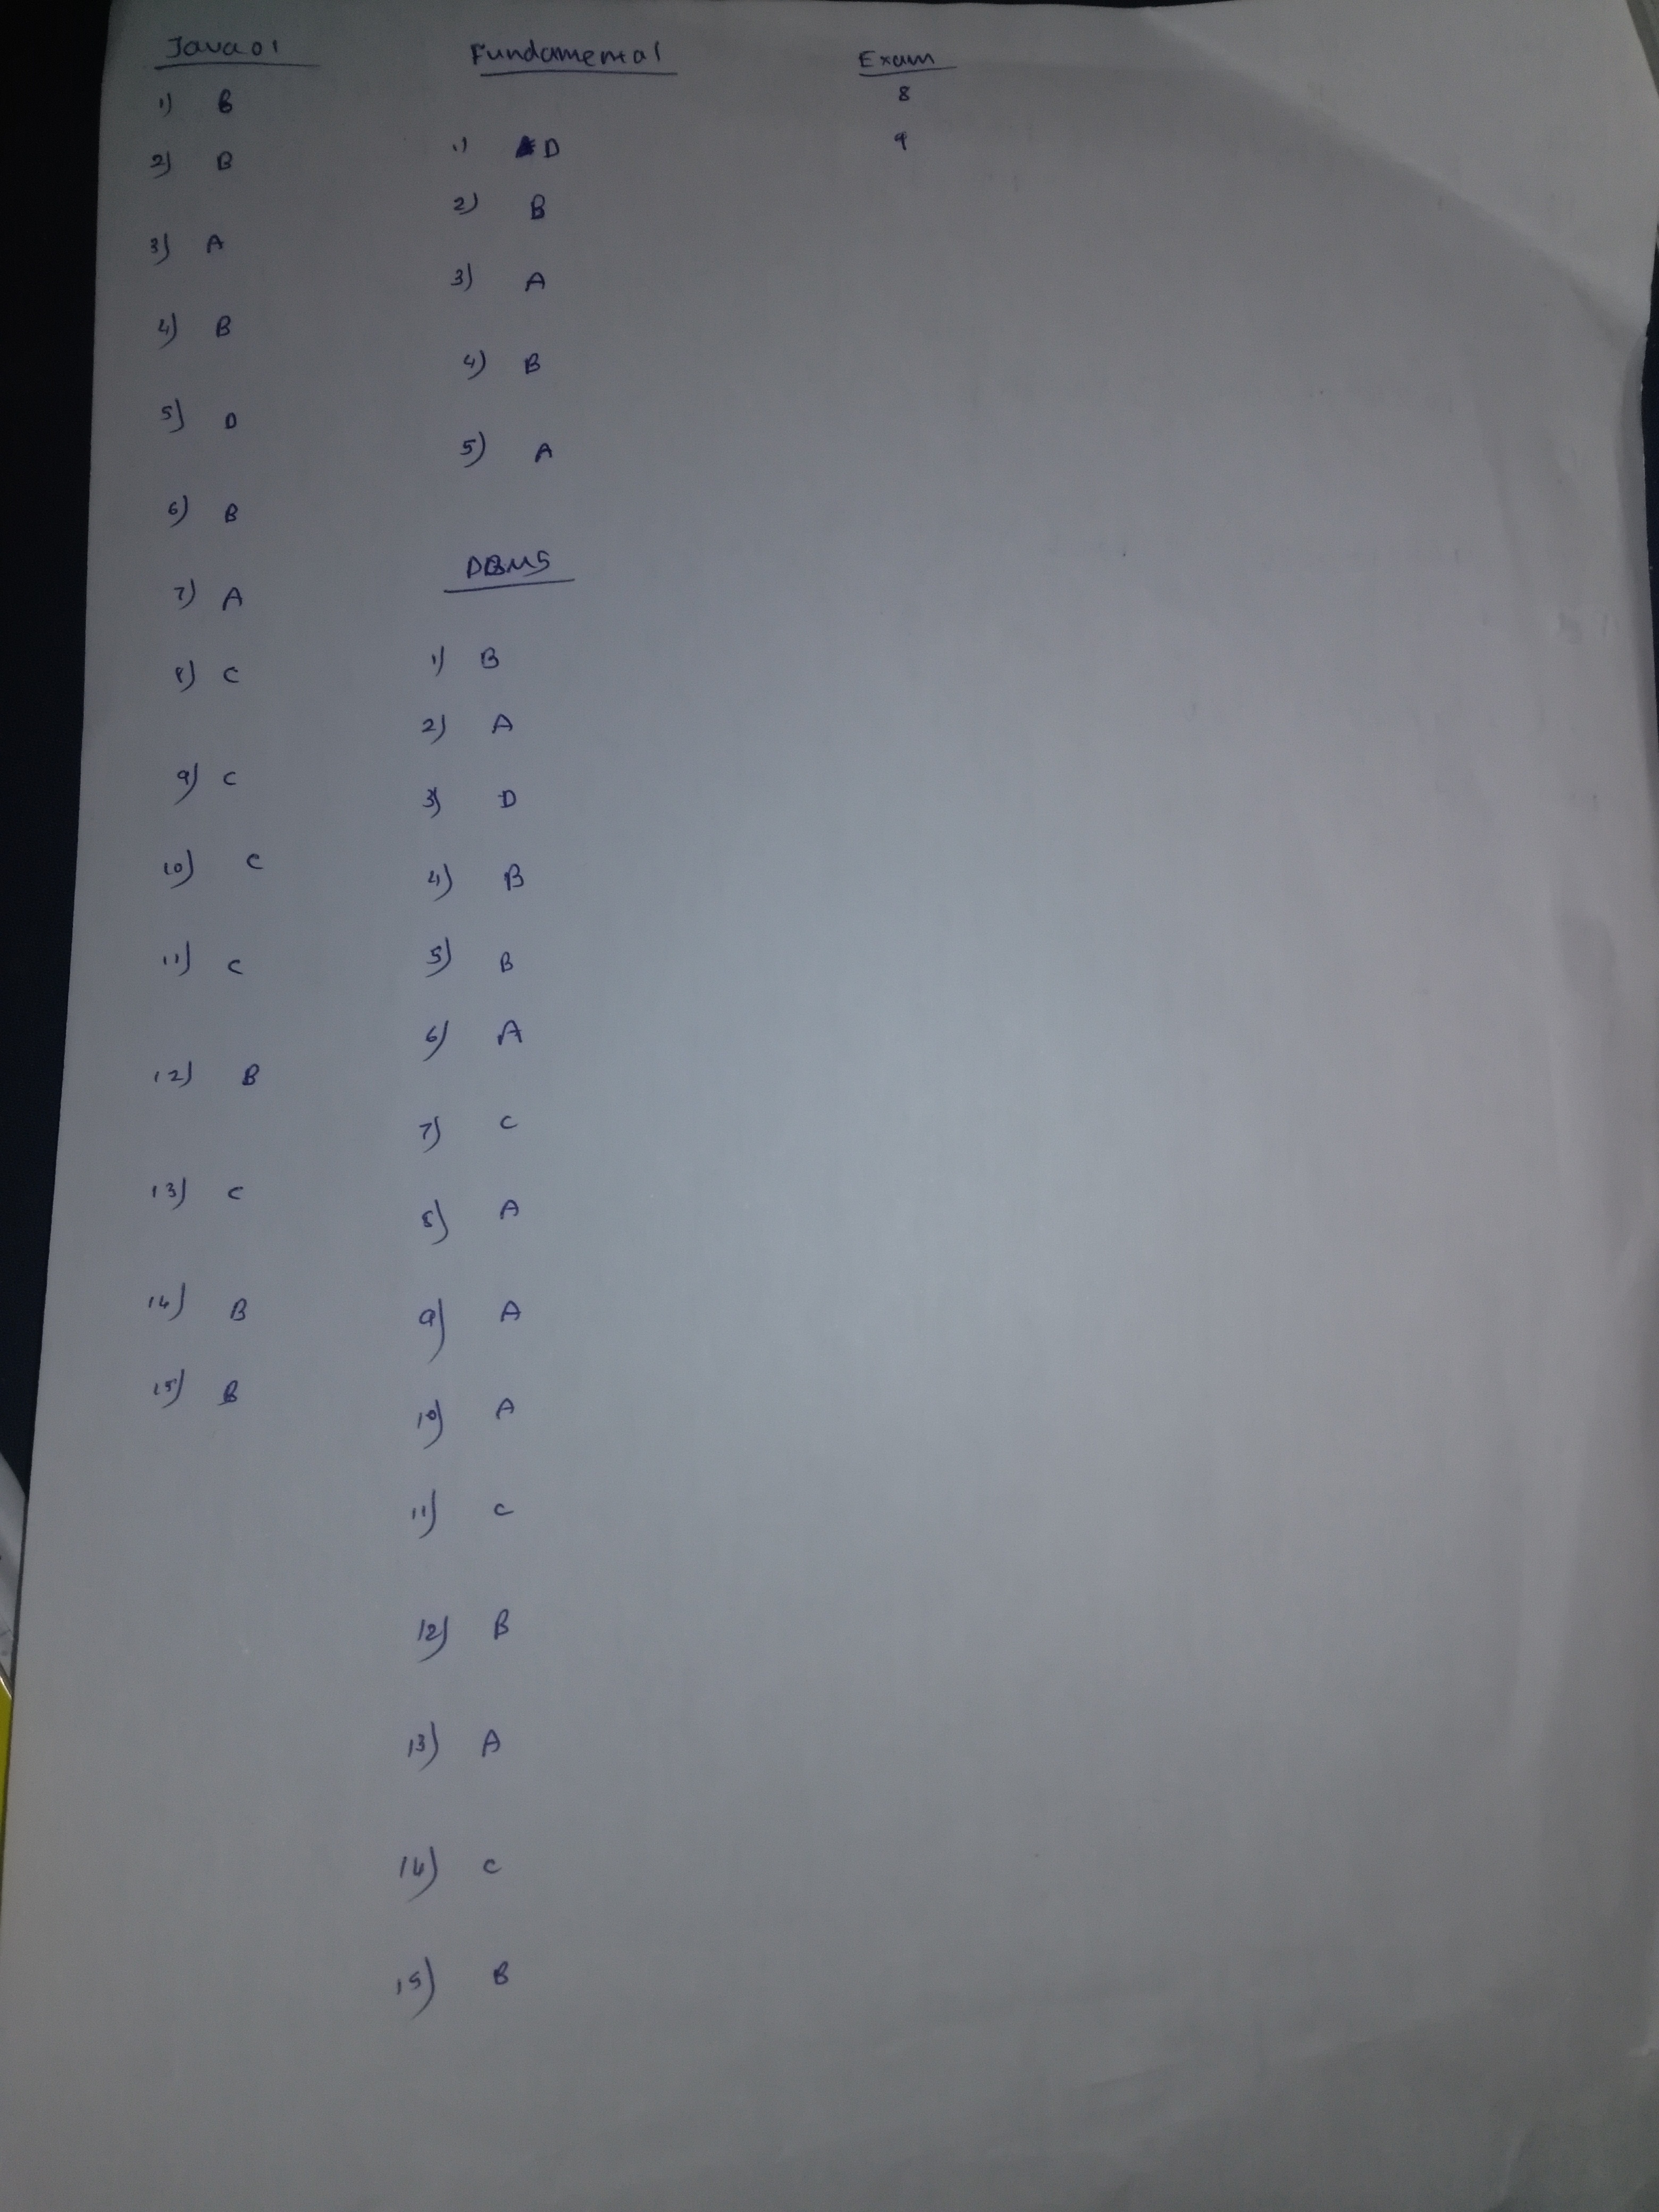 Java01
1) B
2) B
3) A
4) B
5) D
6) B
7) A
8) C
9) C
10) C
11) C
12) B
13) C
14) B
15) B
Fundamental
1) D
2) B
3) A
4) B
5) A
DBMS
1) B
2) A
3) D
4) B
5) B
6) A
7) C
8) A
9) A
10) A
11) C
12) B
13) A
14) C
15) B
Exam
8
9